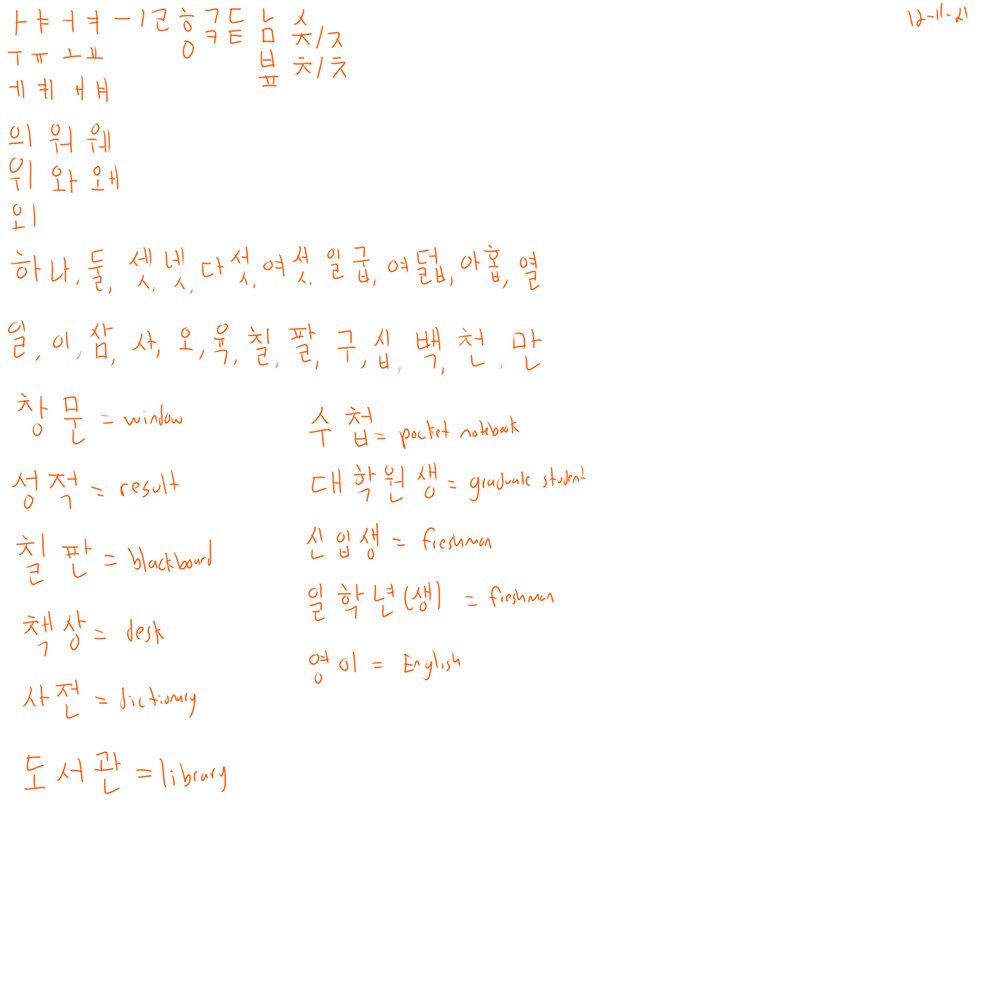 12-11-21
ㅏ ㅑ ㅓ ㅕ ㅡ ㅣ ㄹ ㅎ ㄱ ㄷ ㄴ ㅅ
ㅇ ㅋ ㅌ ㅁ ㅈ/ㅈ
ㅜ ㅠ ㅗ ㅛ ㅂ ㅊ/ㅊ
ㅍ
ㅔ ㅖ ㅐ ㅒ
의 워 웨
위 와 왜
외
하나, 둘, 셋, 넷, 다섯, 여섯, 일굽, 여덟, 아홉, 열
일, 이, 삼, 사, 오, 육, 칠, 팔, 구, 십, 백, 천, 만
창문 = window
성적 = result
칠판 = blackboard
책상 = desk
사전 = dictionary
도서관 = library
수첩 = pocket notebook
대학원생 = graduate student
신입생 = freshman
일학년(생) = freshman
영이 = English